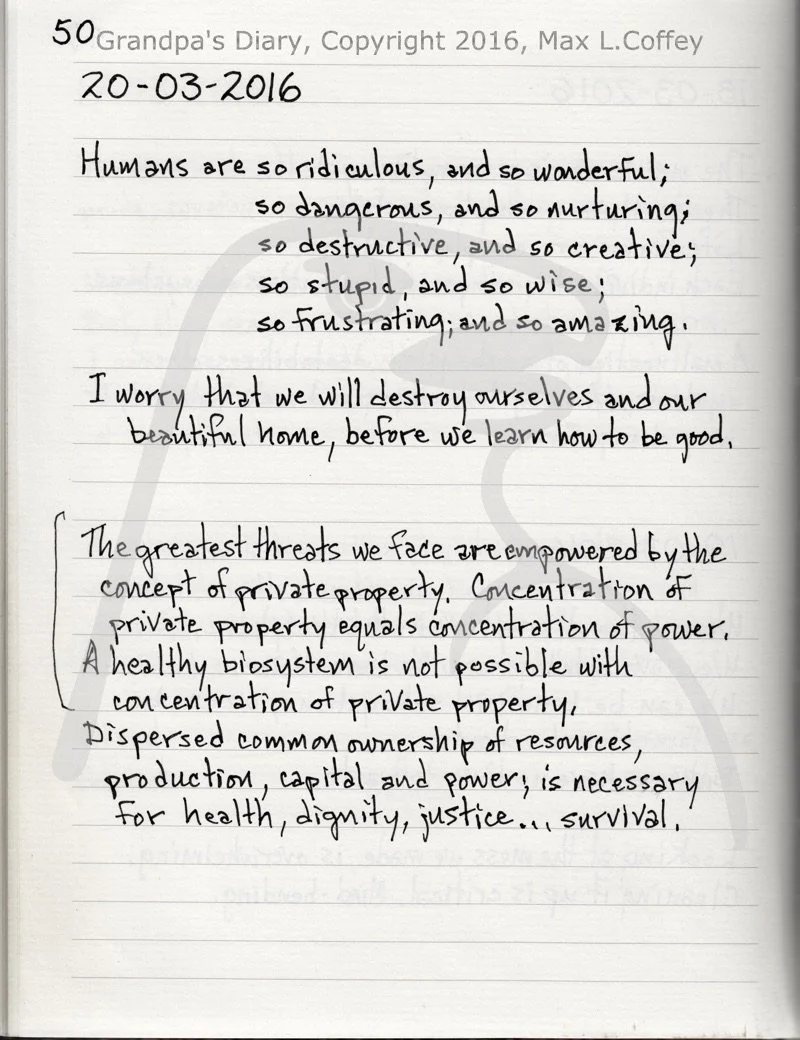 50
Grandpa's Diary, Copyright 2016, Max L.Coffey
20-03-2016
Humans are so ridiculous, and so wonderful;
so dangerous, and so nurturing;
so destructive, and so creative;
so stupid, and so wise;
so frustrating; and so amazing.
I worry that we will destroy ourselves and our
beautiful home, before we learn how to be good.
The greatest threats we face are empowered by the
concept of private property. Concentration of
private property equals concentration of power.
A healthy biosystem is not possible with
concentration of private property.
Dispersed common ownership of resources,
production, capital and power; is necessary
for health, dignity, justice... survival.